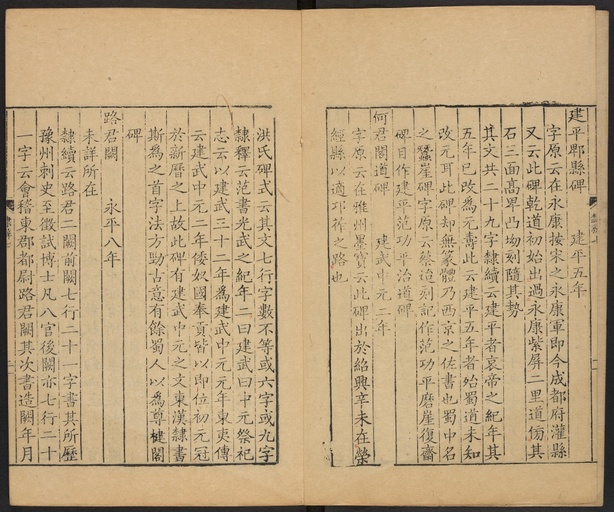 建平郫縣碑　建平五年
字原云在永康按宋之永康軍即今成都府灌縣
又云此碑乾道初始出過永康紫屏二里道傍其
石三面高卑凸坳刻隨其勢
其文共二十九字隸續云建平者哀帝之紀年其
五年已改為元壽此云建平五年者殆蜀道未知
改元耳此碑却無篆體乃西京之佐書也蜀中名
之蠶崖碑字原云蔡迨刻記作范功平磨崖復齋
碑目作建平范功平治道碑
何君閣道碑　建武中元二年
字原云在雅州墨寶云此碑出於紹興辛未在滎
經縣以適邛莋之路也
洪氏碑式云其文七行字數不等或六字或九字
隸釋云范書光武之紀年二曰建武曰中元祭祀
志云以建武三十二年為建武中元元年東夷傳
云建武中元二年倭奴國奉貢皆以即位初元冠
於新曆之上故此碑有建武中元之文東漢隸書
斯為之首字法方勁古意有餘蜀人以為尊楗閣
碑
路君闕　永平八年
未詳所在
隸續云路君二闕前闕七行二十一字書其所歷
豫州刺史至徵試博士凡八官後闕亦七行二十
一字云會稽東郡都尉路君闕其次書造闕年月